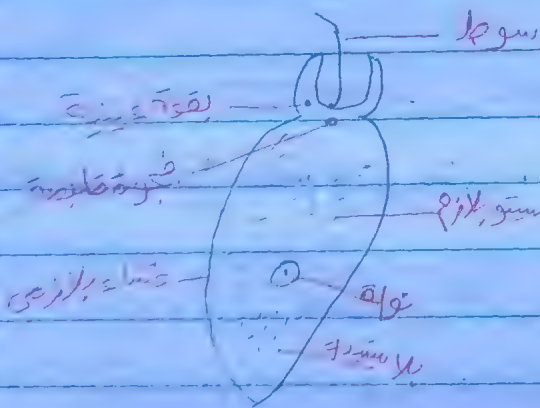 سوط
بقعة عينية
فجوة قابضة
سيتوبلازم
غشاء بلازمي
نواة
بلاستيدة